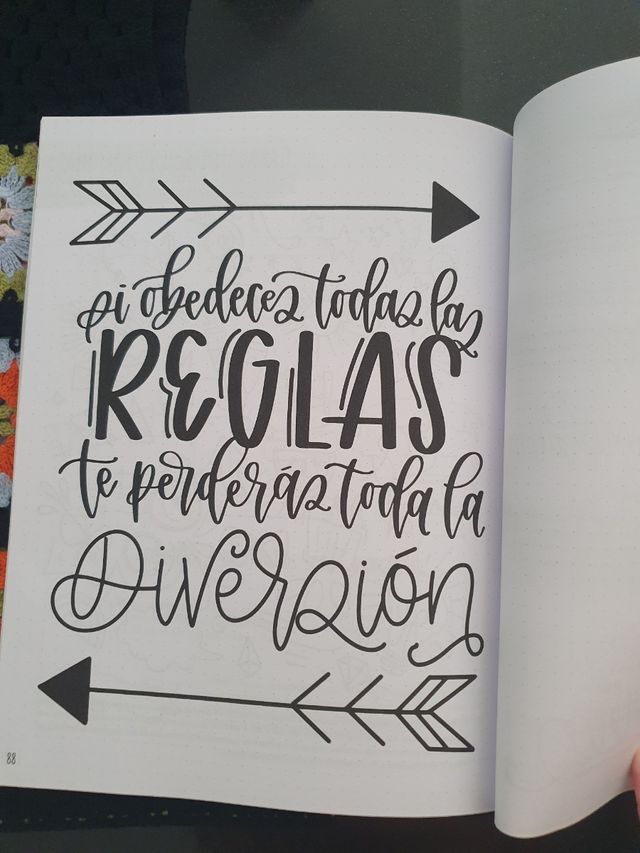 si obedeces todas las
REGLAS
te perderás toda la
Diversión
88